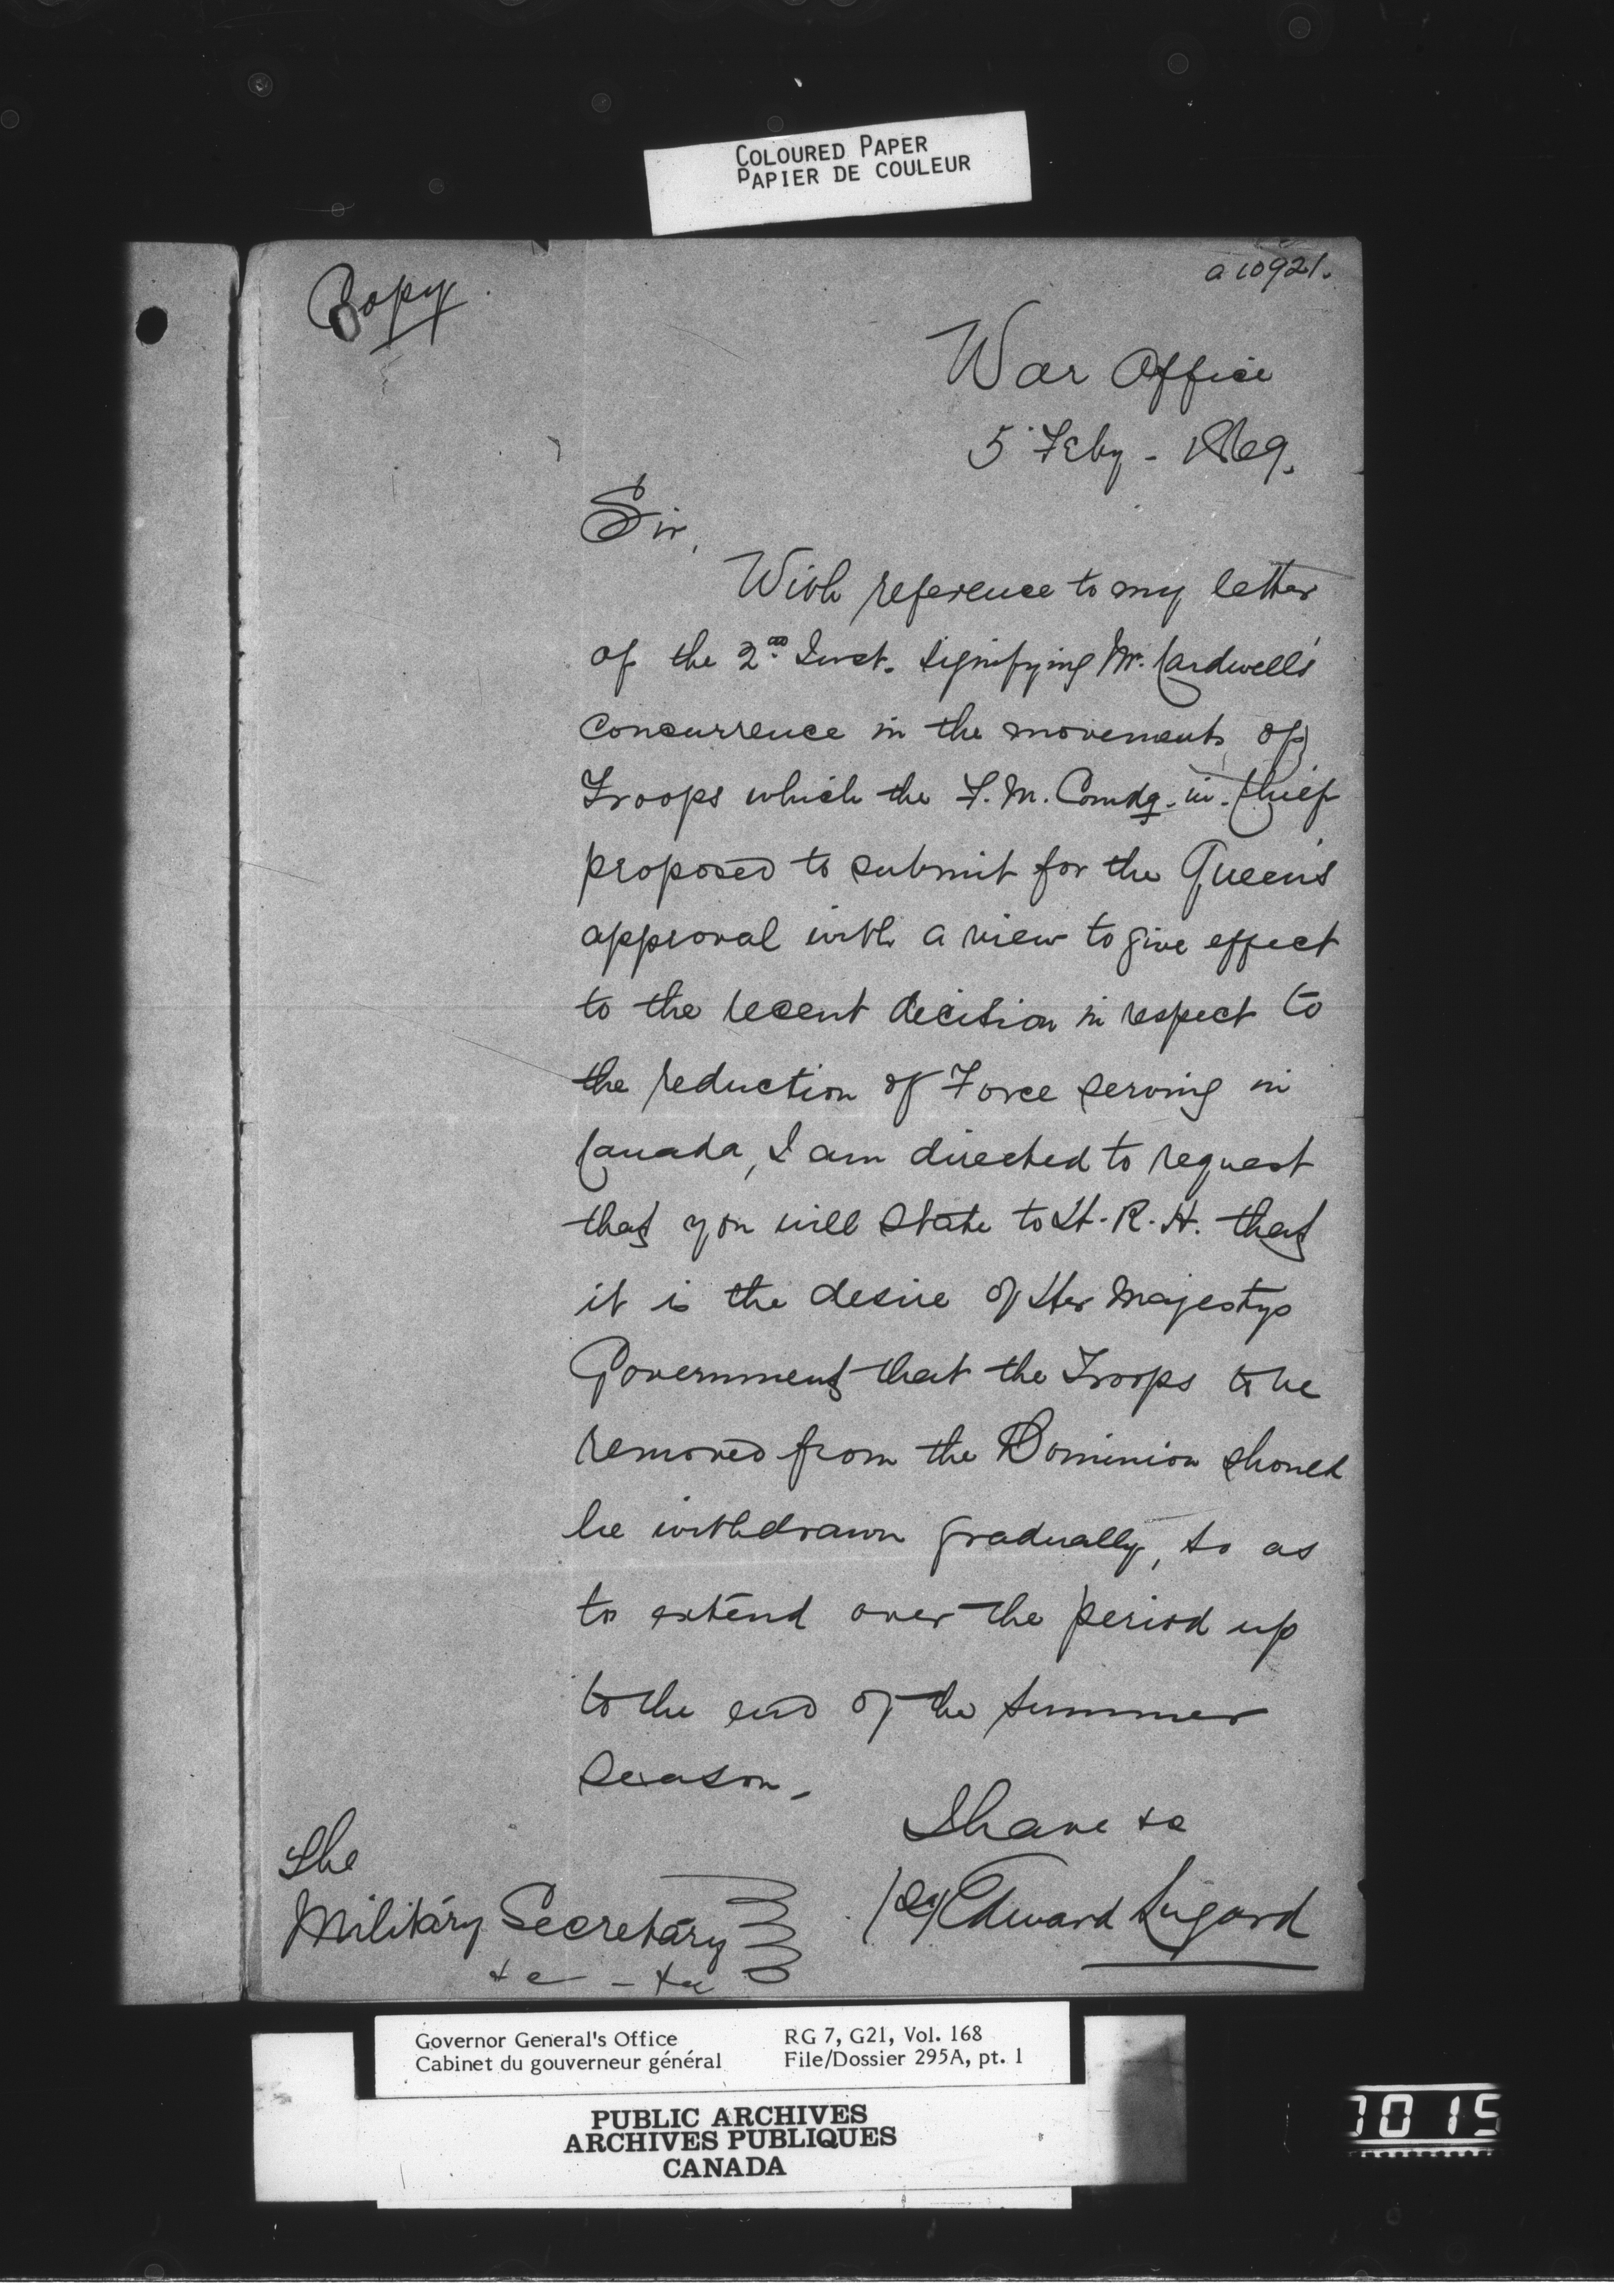 COLOURED PAPER
PAPIER DE COULEUR
a 10921.
Copy
War Office
5 Feby - 1869.
Sir,
With reference to my letter
of the 2nd Inst. signifying Mr. Cardwell's
concurrence in the movements of
Troops which the F. M. Comdg. in. Chief
proposed to submit for the Queen's
approval with a view to give effect
to the recent decision in respect to
the reduction of Force serving in
Canada, I am directed to request
that you will state to H. R. H. that
it is the desire of Her Majestys
Government that the Troops to be
removed from the Dominion should
be withdrawn gradually, so as
to extend over the period up
to the end of the summer
season.
I have &c
(sd) Edward Lugard
The
Military Secretary
&c - &c
Governor General's Office
Cabinet du gouverneur général
RG 7, G21, Vol. 168
File/Dossier 295A, pt. 1
PUBLIC ARCHIVES
ARCHIVES PUBLIQUES
CANADA
1015